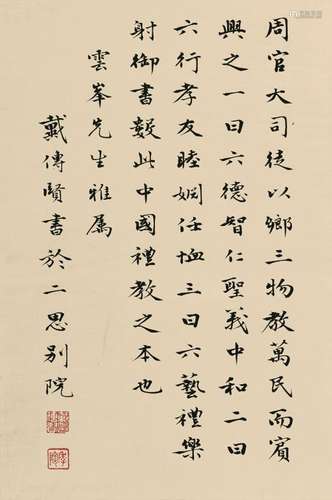 周官大司徒以鄉三物教萬民而賓
興之一曰六德智仁聖義中和二曰
六行孝友睦婣任恤三曰六藝禮樂
射御書數此中國禮教之本也
雲峯先生雅屬
戴傳賢書於二思別院